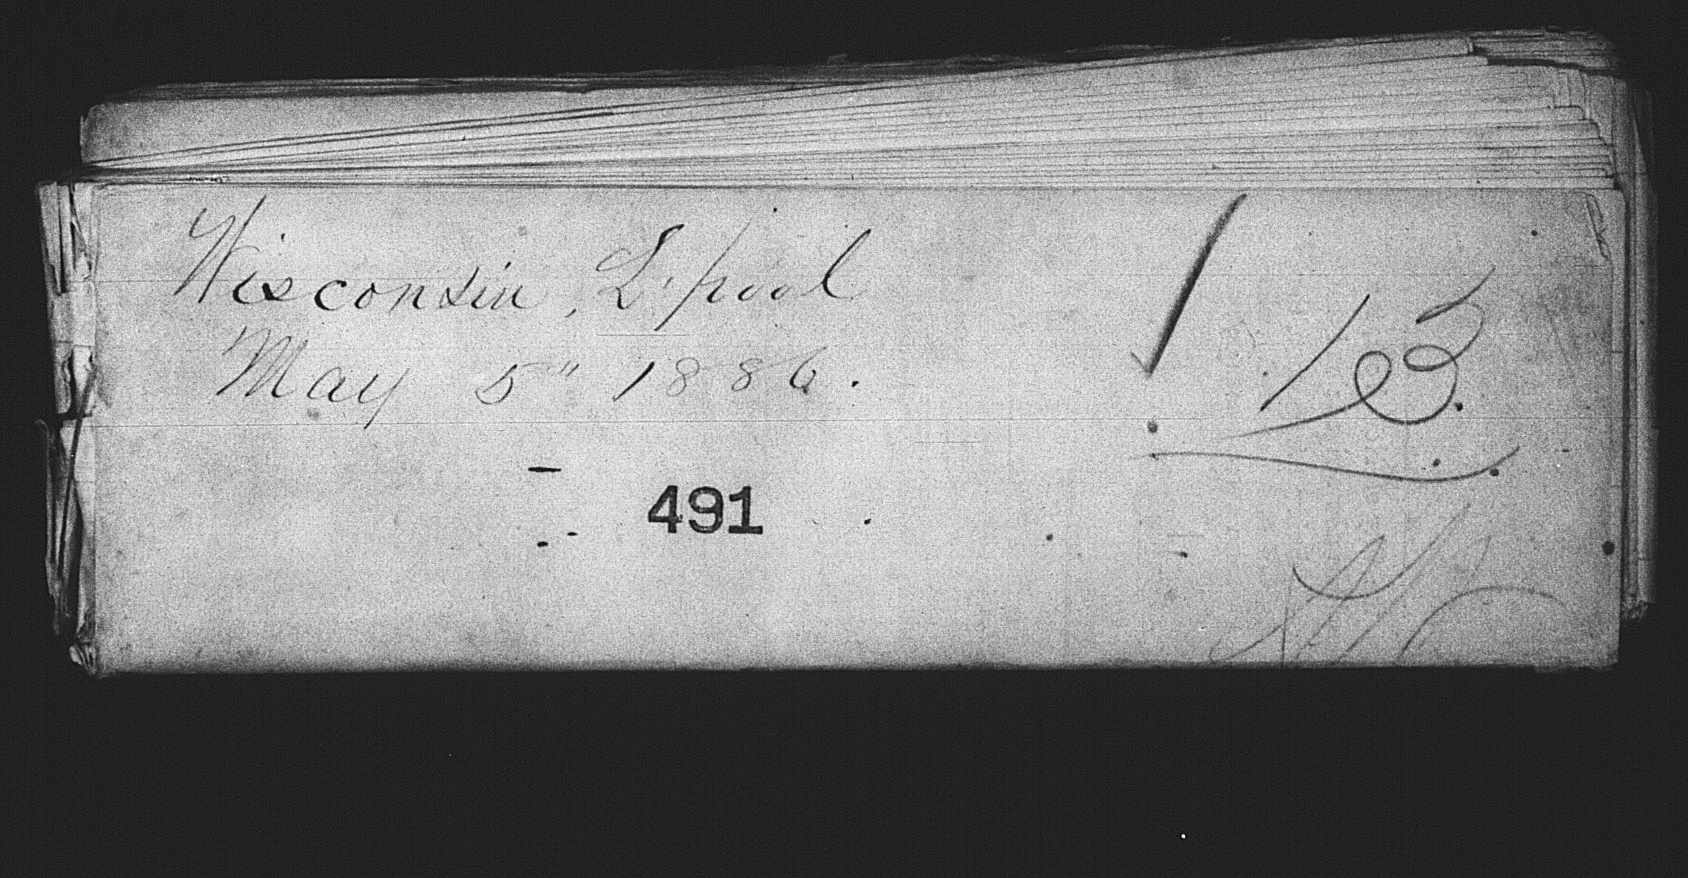 Wisconsin, L'pool
May 5" 1886.
491